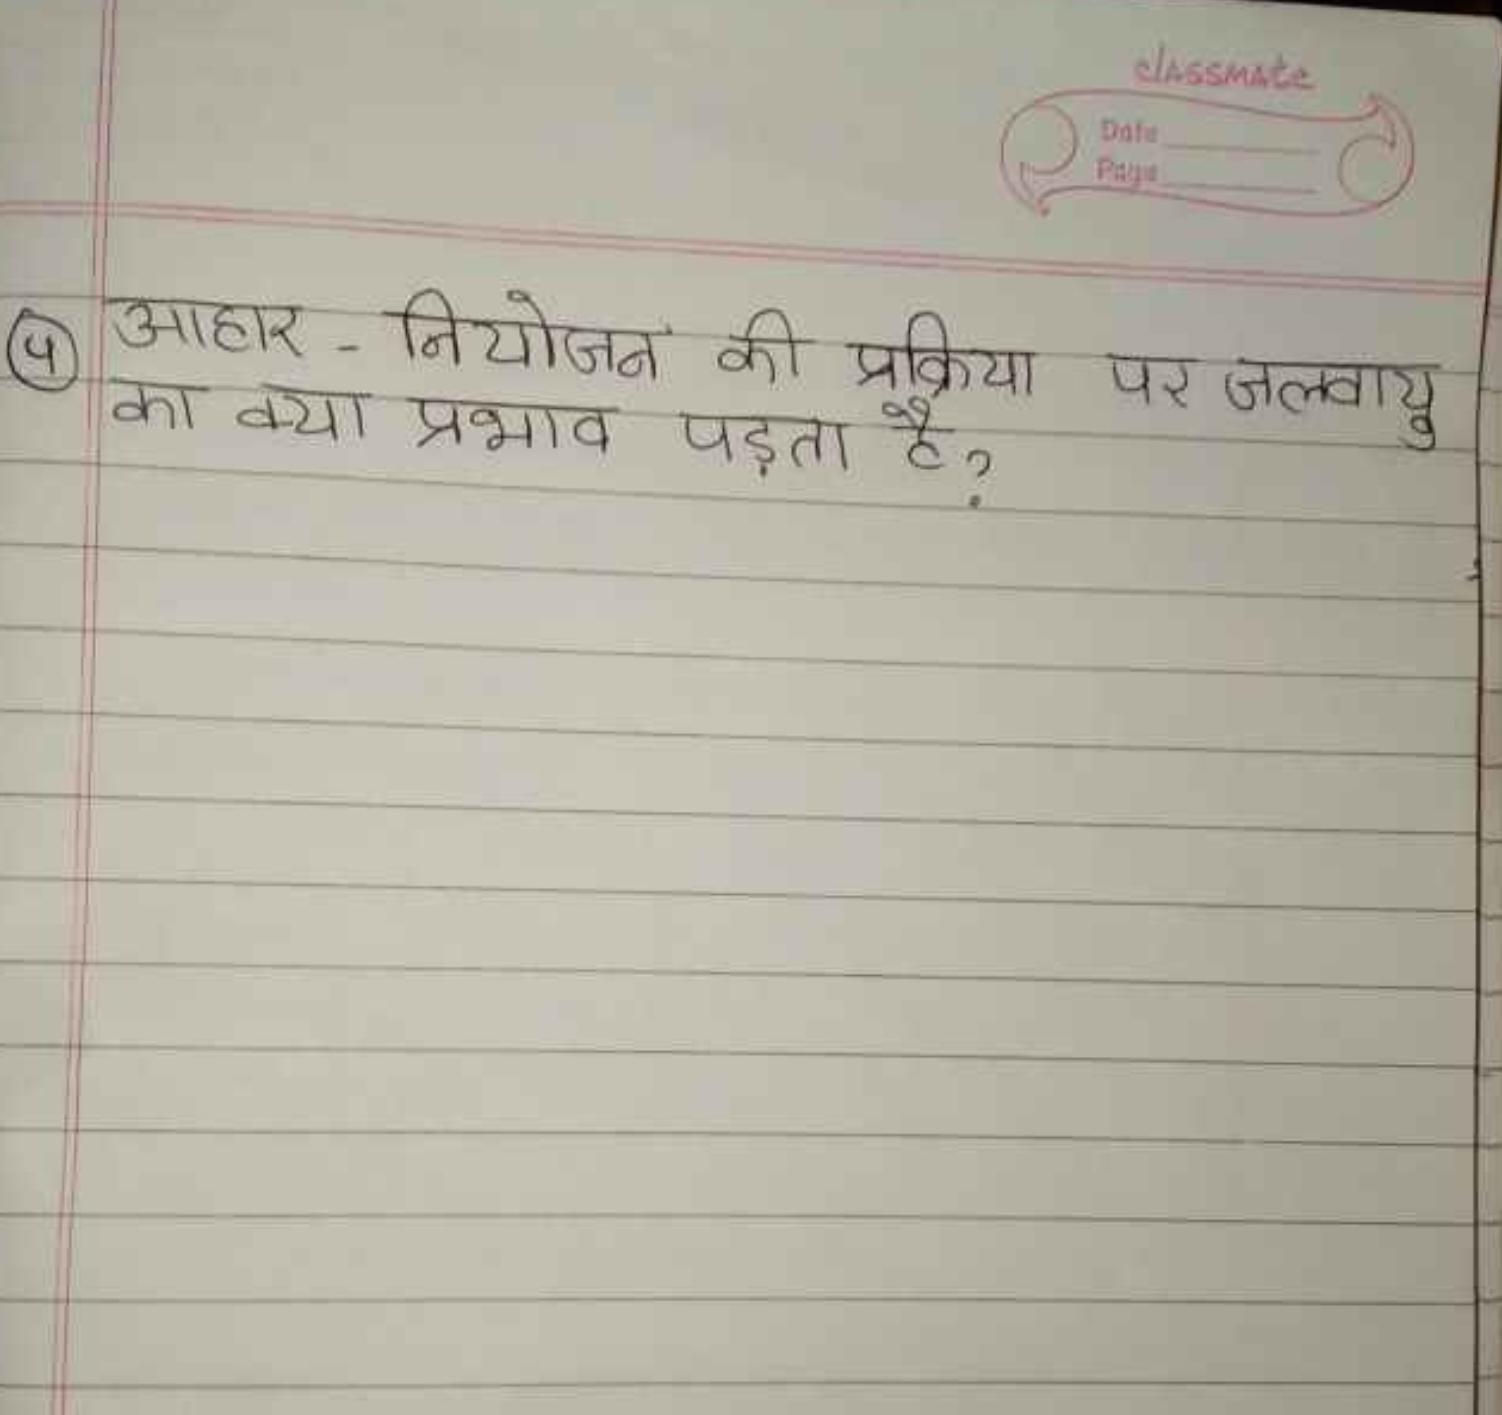 classmate
Date
Page
५ आहार - नियोजन की प्रक्रिया पर जलवायु
का क्या प्रभाव पड़ता है?